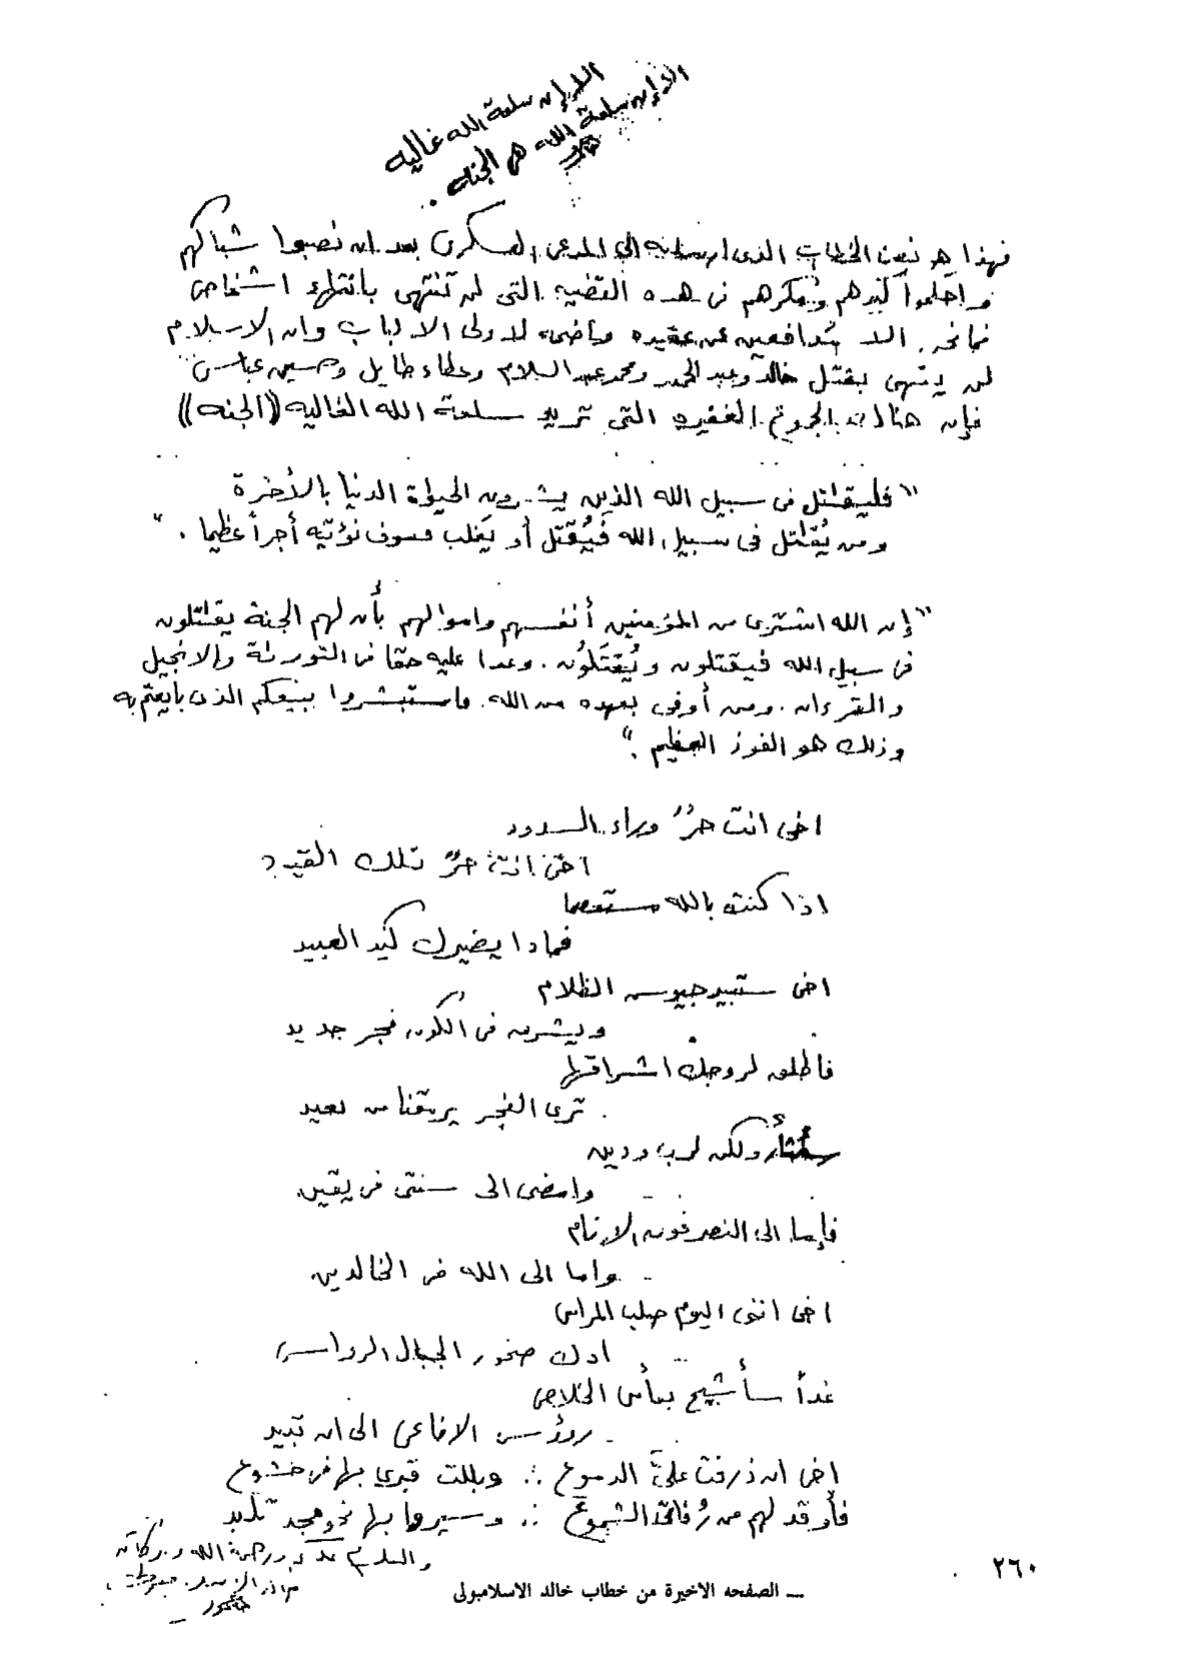 الا إن سلعة الله غاليه
الا إن سلعة الله هى الجنه
فهذا هو نص الخطاب الذى ارسلته الى المدعى العسكرى بعد ان نصبوا شباكهم
واحكموا كيدهم ومكرهم فى هذه القضيه التى لن تنتهى بانتهاء اشخاص
فما نحن الا مدافعين عن عقيده واضحه لاولى الالباب وان الاسلام
لن ينتهى بقتل خالد وعبد الحميد ومحمد عبد السلام وعطا طايل وحسين عباس
فإن هناك الجموع الغفيره التى تريد سلعة الله الغاليه ((الجنه))
" فليقاتل فى سبيل الله الذين يشرون الحيواة الدنيا بالأخرة
ومن يُقاتل فى سبيل الله فيُقتل أو يَغلب فسوف نؤتيه أجراً عظيما . "
" إن الله اشترى من المؤمنين أنفسهم واموالهم بأن لهم الجنة يقاتلون
فى سبيل الله فيقتلون ويُقتَلوُن . وعدا عليه حقا فى التورىٰة والانجيل
والقرءان . ومن أوفى بعهده من الله . فاستبشروا ببيعكم الذى بايعتم به
وذلك هو الفوز العظيم . "
اخى انت حرٌ وراء السدود
اخى انت حرٌ بتلك القيود
اذا كنت بالله مستعصما
فماذا يضيرك كيد العبيد
اخى ستبيد جيوش الظلام
ويشرق فى الكون فجر جديد
فاطلق لروحك اشراقها
ترى الفجر يرمقنا من بعيد
سأثأر ولكن لرب ودين
وامضى الى سنتى فى يقين
فإما الى النصر فوق الانام
واما الى الله فى الخالدين
اخى اننى اليوم صلب المراس
ادك صخور الجبال الرواسى
غداً سأشيح بفأس الخلاص
رؤوس الافاعى الى ان تبيد
اخى ان ذرفت علىّ الدموع .. وبللت قبرى بها فى خشوع
فأوقد لهم من رُفاتى الشموع .. وسيروا بها نحو مجد تليد
والسلام عليكم ورحمة الله وبركاته
٢٦٠
ــ الصفحه الاخيرة من خطاب خالد الاسلامبولى